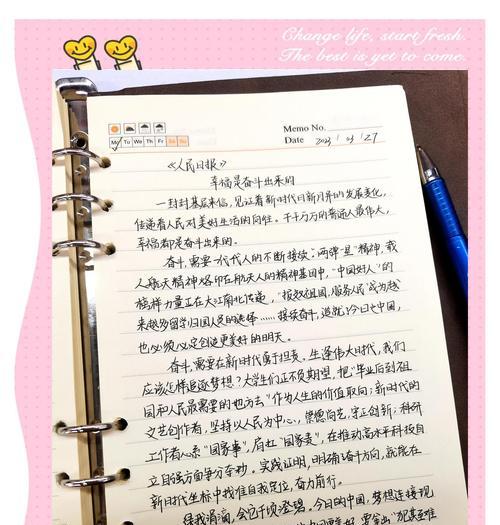 Change life, start fresh.
The best is yet to come.
Memo No.
Mo Tu We Th Fr Sa Su
Date 2023 / 03 / 27
《人民日报》
幸福是奋斗出来的
一封封基层来信,见证着新时代日新月异的发展变化,
传递着人民对美好生活的向往。千千万万的普通人最伟大,
幸福都是奋斗出来的。
奋斗,需要一代代人的不断接续。"两弹一星"精神,载
人航天精神烙印在航天人的精神基因中,"中国好人"的
榜样力量正在大江南北传递,"报效祖国,服务人民"成为越
来越多留学归国人员的选择……接续奋斗,造就了今日之中国,
也必须必定创造更美好的明天。
奋斗,需要在新时代勇于担责。生逢伟大时代,我们
应该怎样追逐梦想?大学生们正不负期望,把"毕业后到祖
国和人民最需要的地方去"作为人生的价值取向;新时代的
文艺创作者,坚持以人民为中心,崇德尚艺,守正创新;科研
工作者心系"国家事",肩扛"国家责",在推动高水平科技自
立自强方面争分夺秒。实践证明,明确奋斗方向,就能在
新时代坐标中找准自我定位,奋力前行。
绿我涓滴,会它千顷澄碧。今日的中国,梦想连接现